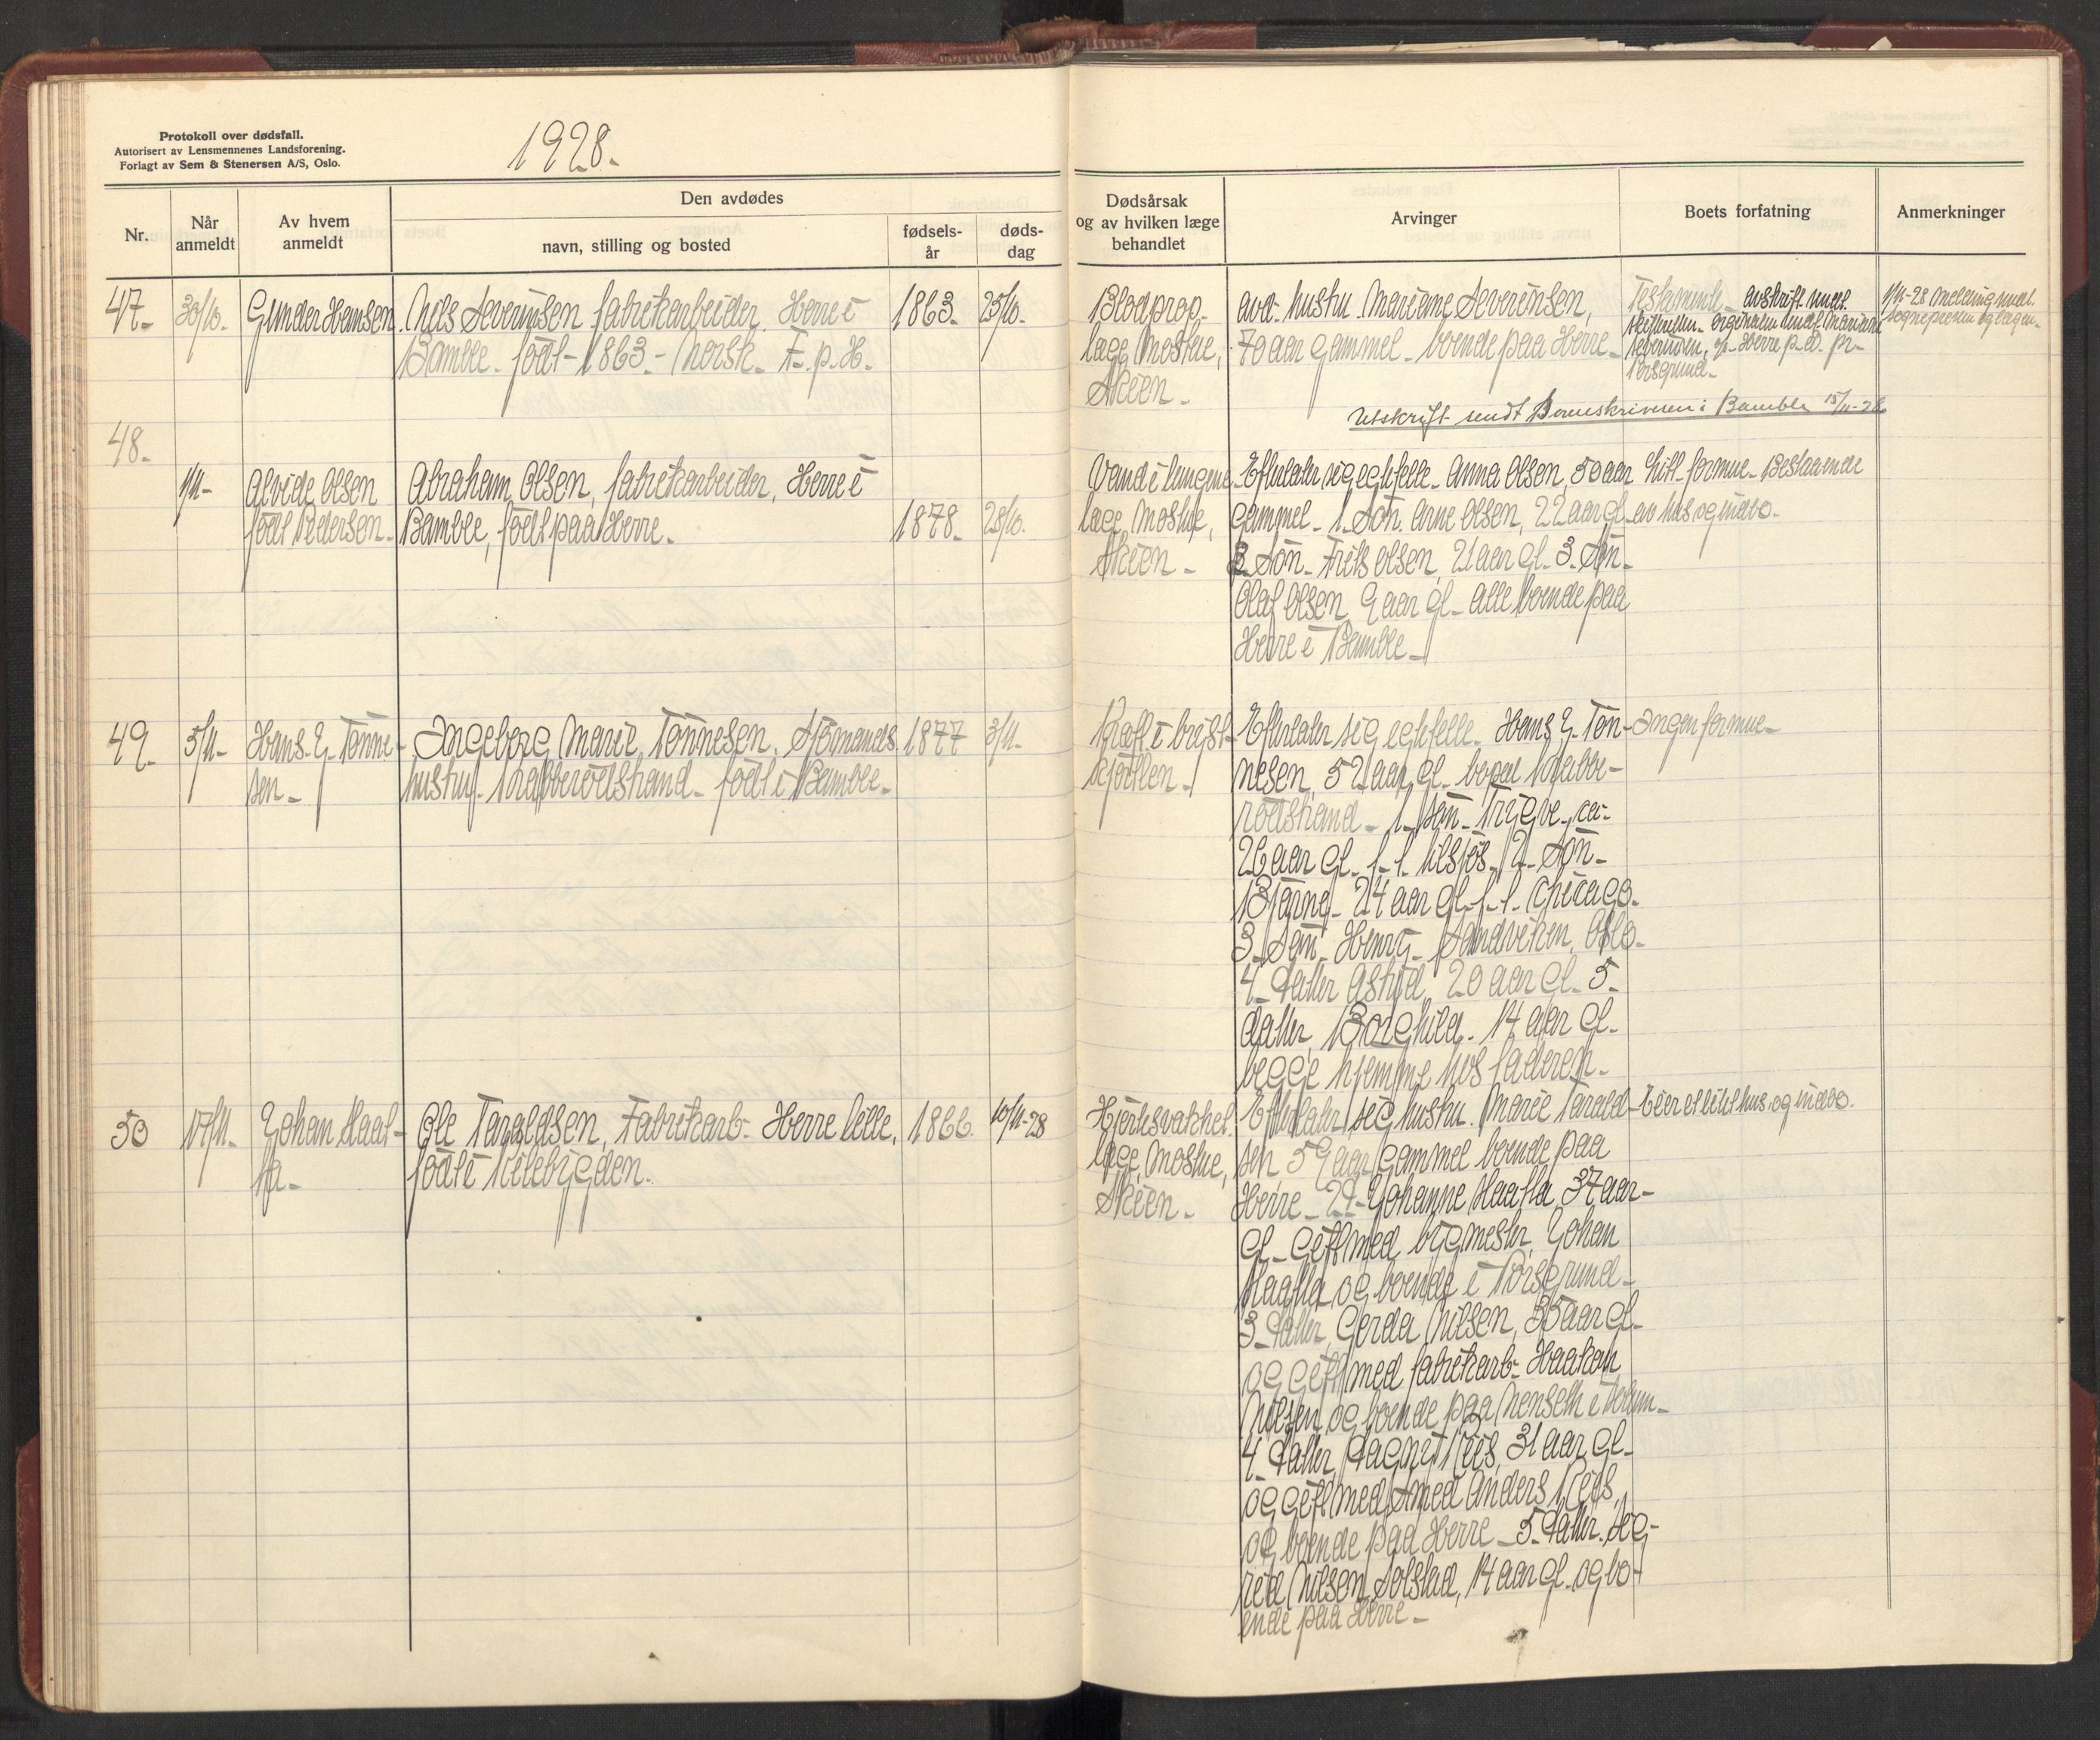 Protokoll over dødsfall.
Autorisert av Lensmennenes Landsforening.
Forlagt av Sem & Stenersen A/S, Oslo.
1928.
Nr.
Når anmeldt
Av hvem anmeldt
Den avdødes
navn, stilling og bosted
fødsels-
år
døds-
dag
Dødsårsak
og av hvilken læge
behandlet
Arvinger
Boets forfatning
Anmerkninger
47.
30/10.
Gunder Hansen
Nils Severinsen fabrikarbeider, Herre i
Bamble. født - 1863 - Norsk. F. p. H.
1863.
25/10.
Blodprop.
læge Moshue,
Skien.
avd. hustru Mariane Severinsen,
70 aar gammel - boende paa Herre.
Testamente avskrift sendt
Mariane
Severinsen, Herre p.å. pr.
Porsgrund.
1/11-28 Melding sendt
sogneprest og
Utskrift sendt Sorenskriveren i Bamble 15/11-28
48.
1/11-
Alvide Olsen
født Pedersen.
Abraham Olsen, fabrikarbeider, Herre i
Bamble, født paa Herre.
1878.
28/10.
Vand i lungene
læge Moshue,
Skien.
Efterlater sig egtefelle Anna Olsen, 50 aar
gammel - 1. Søn. Arne Olsen, 22 aar gl.
2 Søn. Nils Olsen, 21 aar gl. 3. Søn.
Olaf Olsen, 9 aar gl. alle boende paa
Herre i Bamble
Litt formue. Bestaaende
av hus og indbo.
49.
5/11-
Hans G. Tønne-
sen
Ingeborg Marie Tønnesen, Sjømands
hustru. Krabberødstrand. født i Bamble.
1877
3/11.
Kræft i bryst-
kjertlen.
Efterlater sig egtefelle. Hans G. Tøn-
nesen, 52 aar gl. bopæl Krabbe-
rødstrand. 1. søn. Trygve, ca.
26 aar gl. f. t. tilsjøs. 2. Søn.
Bjarne. 24 aar gl. f. t. Chicago.
3. Søn. Henry. Sandviken, Oslo.
4. Datter Astrid, 20 aar gl. 5.
datter, Borghild. 14 aar gl.
begge hjemme hos faderen.
Ingen formue
50
17/11.
Johan Haat-
ta
Ole Taraldsen, Fabrikarb. Herre
født i Kilebygden.
1866.
10/11-28
Hjertesvakhet.
læge Moshue,
Skien.
Efterlater sig hustru. Marie Tarald-
sen 59 aar gammel boende paa
Herre. Johanne Haatta, 37 aar
gl. gift med bygmester Johan
Haatta og boende i Porsgrund.
3. Datter, Gerda Nilsen, 35 aar gl.
og gift med fabrikarb. Haakon
Nilsen, og boende paa Menstad i
4. Datter, Dagny Riis, 31 aar gl.
og gift med smed Anders Riis,
og boende paa Herre. 5. Datter. Sig-
rid Nilsen Solstad, 14 aar gl. og bo-
ende paa Herre
Eier et litet hus og indbo.